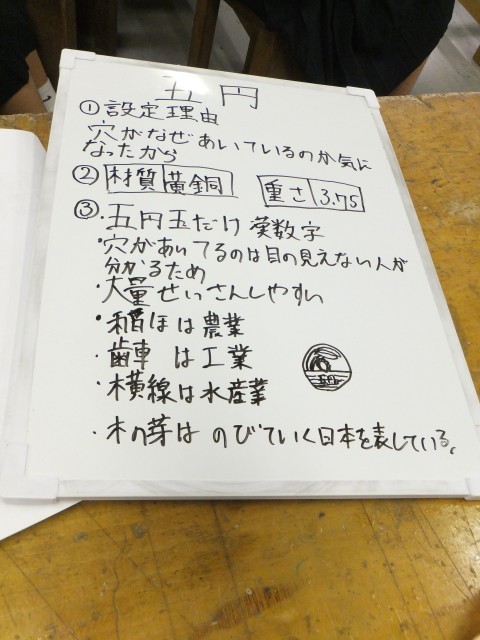 五円
①設定理由
穴がなぜあいているのか気に
なったから
②材質 黄銅 重さ 3.75
③・五円玉だけ漢数字
・穴があいてるのは目の見えない人が
分かるため
・大量せいさんしやすい
・稲ほは農業
・歯車は工業
・横線は水産業
・木の芽はのびていく日本を表している。